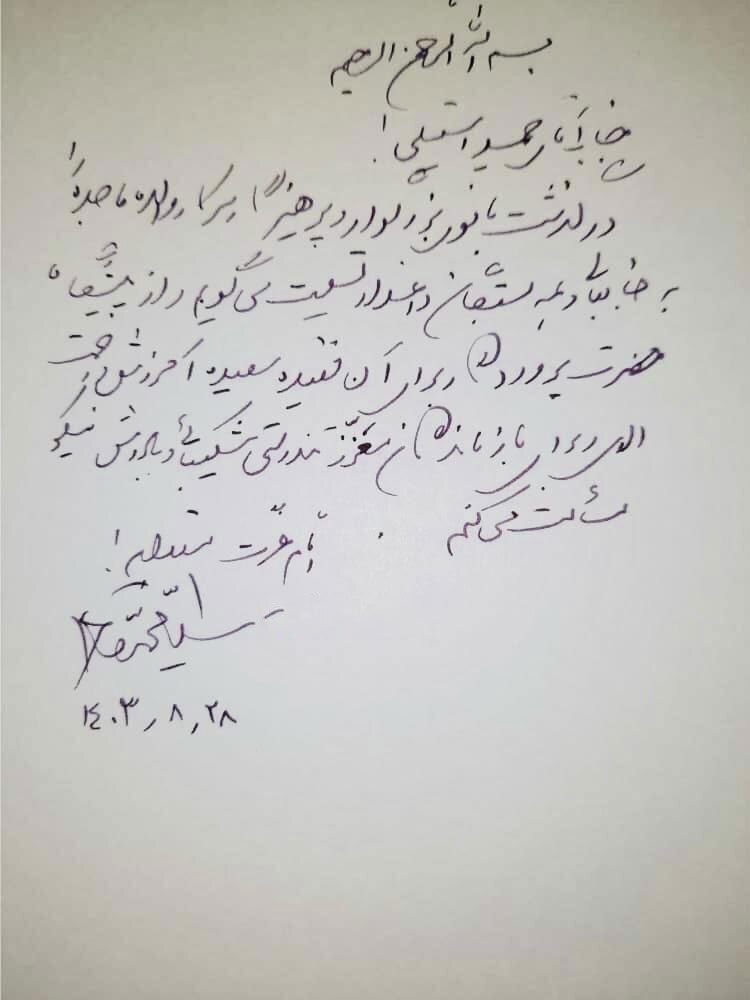 بسم الله الرحمن الرحیم
جناب آقای حمید استیلی!
درگذشت بانوی بزرگوار و پرهیزگار سرکار والده ماجده را
به جنابعالی و همه بستگان داغدار تسلیت می‌گویم و از پیشگاه
حضرت پروردگار برای آن فقیده سعیده آمرزش و رحمت
الهی و برای بازماندگان معزّز تندرستی شکیبائی و پاداش نیکو
مسألت می‌کنم.
ایام عزت مستدام!
سید محمد خاتمی
۱۴۰۳٫۸٫۲۸